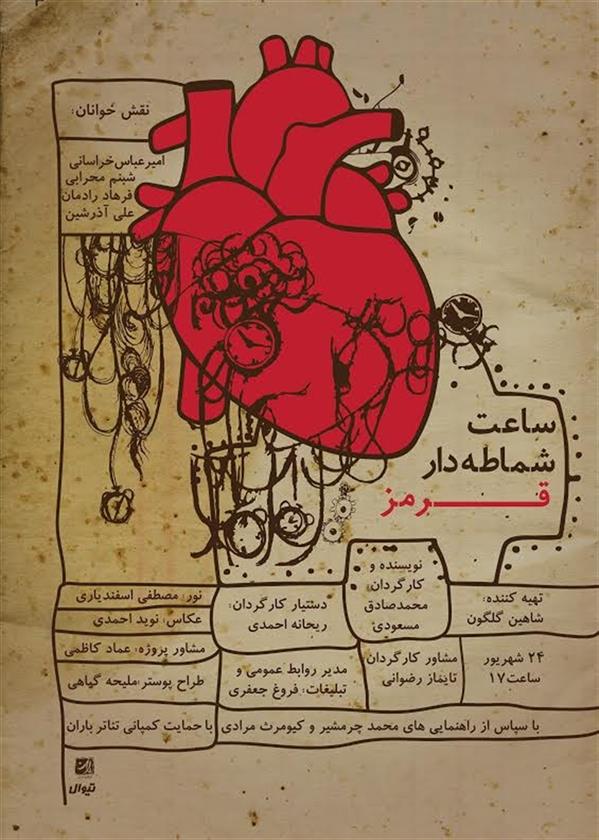 نقش خوانان:
امیرعباس خراسانی
شبنم محرابی
فرهاد رادمان
علی آذرشین
ساعت
شماطه دار
قرمز
تهیه کننده:
شاهین گلگون
نویسنده و
کارگردان:
محمدصادق
مسعودی
دستیار کارگردان:
ریحانه احمدی
نور: مصطفی اسفندیاری
عکاس: نوید احمدی
۲۴ شهریور
ساعت۱۷
مشاور کارگردان
تایماز رضوانی
مدیر روابط عمومی و
تبلیغات: فروغ جعفری
مشاور پروژه: عماد کاظمی
طراح پوستر:ملیحه گیاهی
با سپاس از راهنمایی های محمد چرمشیر و کیومرث مرادی
با حمایت کمپانی تئاتر باران
تیوال